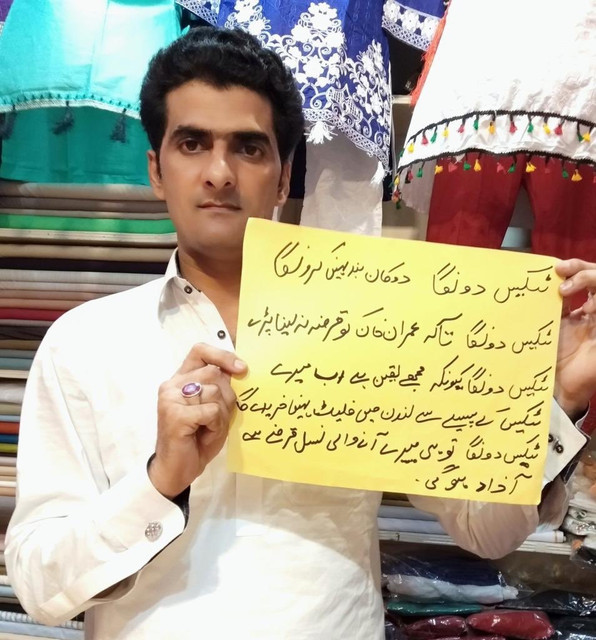 ٹیکس دونگا دوکان بند نہیں کرونگا
ٹیکس دونگا تاکہ عمران خان کو قرضہ نہ لینا پڑے
ٹیکس دونگا کیونکہ مجھے یقین ہے اب میرے
ٹیکس کے پیسے سے لندن میں فلیٹ نہیں خریدے گا
ٹیکس دونگا تو ہی میرے آنے والی نسل قرضے سے
آذاد ہوگی۔